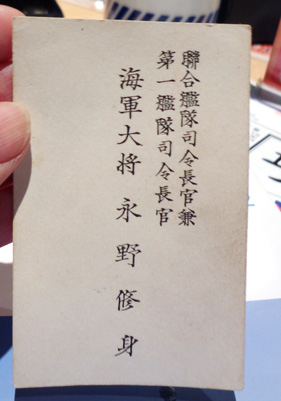 聯合艦隊司令長官兼
第一艦隊司令長官
海軍大将 永野修身